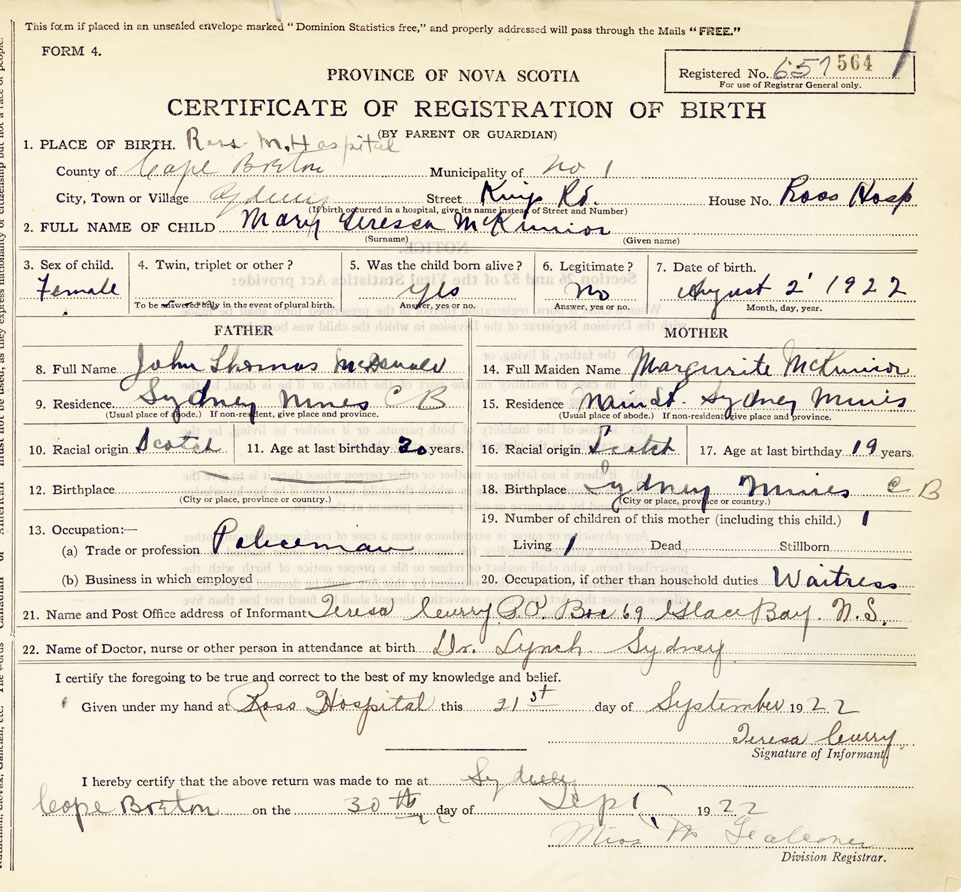 This form if placed in an unsealed envelope marked "Dominion Statistics free," and properly addressed will pass through the Mails "FREE."
FORM 4.
Registered No. 657 564
For use of Registrar General only.
PROVINCE OF NOVA SCOTIA
CERTIFICATE OF REGISTRATION OF BIRTH
(BY PARENT OR GUARDIAN)
1. PLACE OF BIRTH. Ross M. Hospital
County of Cape Breton Municipality of No 1
City, Town or Village Sydney Street Kings Rd. House No. Ross Hosp
(If birth occurred in a hospital, give its name instead of Street and Number)
2. FULL NAME OF CHILD Mary Teressa McKinnon
(Surname) (Given name)
3. Sex of child. 4. Twin, triplet or other? 5. Was the child born alive? 6. Legitimate? 7. Date of birth.
Female Yes No August 2 1922
To be answered only in the event of plural birth. Answer, yes or no. Answer, yes or no. Month, day, year.
FATHER MOTHER
8. Full Name John Thomas McDonald 14. Full Maiden Name Margurite McKinnon
9. Residence Sydney Mines C B 15. Residence Main St. Sydney Mines
(Usual place of abode.) If non-resident, give place and province. (Usual place of abode.) If non-resident give place and province.
10. Racial origin Scotch 11. Age at last birthday 20 years. 16. Racial origin Scotch 17. Age at last birthday 19 years.
12. Birthplace 18. Birthplace Sydney Mines C B
(City or place, province or country.) (City or place, province or country.)
13. Occupation:— 19. Number of children of this mother (including this child.) 1
(a) Trade or profession Policeman Living 1 Dead Stillborn
(b) Business in which employed 20. Occupation, if other than household duties Waitress
21. Name and Post Office address of Informant Teresa Curry P.O. Box 69 Glace Bay. N.S.
22. Name of Doctor, nurse or other person in attendance at birth Dr. Lynch Sydney
I certify the foregoing to be true and correct to the best of my knowledge and belief.
Given under my hand at Ross Hospital this 21st day of September 1922
Teresa Curry
Signature of Informant
I hereby certify that the above return was made to me at Sydney
Cape Breton on the 30th day of Sept 1922
Miss M Falconer
Division Registrar.